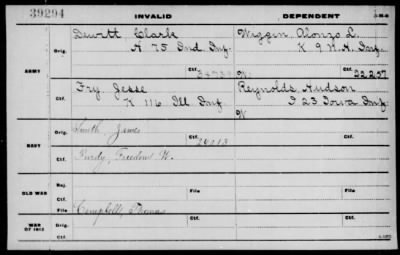 39294
INVALID
DEPENDENT
Dewitt Clark
Wiggin, Alonzo L.
Orig.
A 75 Ind. Inf.
K 9 N.H. Inf.
ARMY
Ctf.
W.
Ctf. 22297
Fry Jesse
Reynolds, Hudson
Ctf.
K 116 Ill Inf
I 23 Iowa Inf
W
Smith, James
Orig.
Ctf. 24013
Ctf.
NAVY
Purdy, Freedom W.
Ctf.
Rej.
Ctf.
File
File
OLD WAR
Campbell, Thomas
File
WAR OF 1812
Ctf.
Ctf.